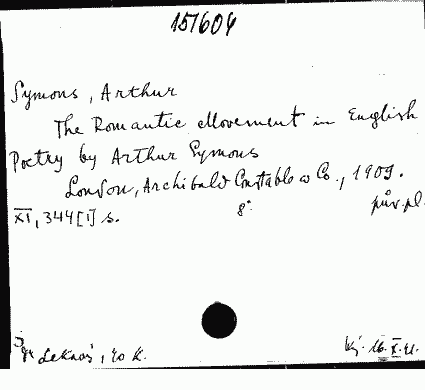 151604
Symons, Arthur
The Romantic Movement in English
Poetry by Arthur Symons
London, Archibald Constable & Co., 1909.
XI, 344 [1] s. 8°. pův. pl.
20 K. 16. X. 41.